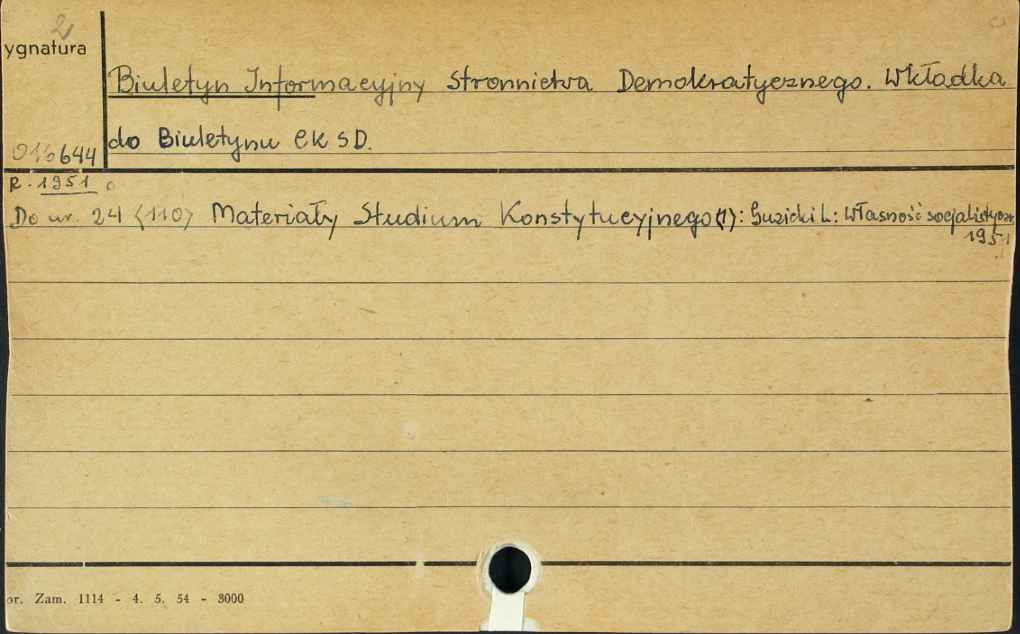 2
ygnatura
Biuletyn Informacyjny Stronnictwa Demokratycznego. Wkładka
do Biuletynu CK SD.
016644
R. 1951
Do nr. 24 <110> Materiały Studium Konstytucyjnego (1): Guzicki L: Własność socjalistyczn
1951
or. Zam. 1114 - 4. 5. 54 - 3000